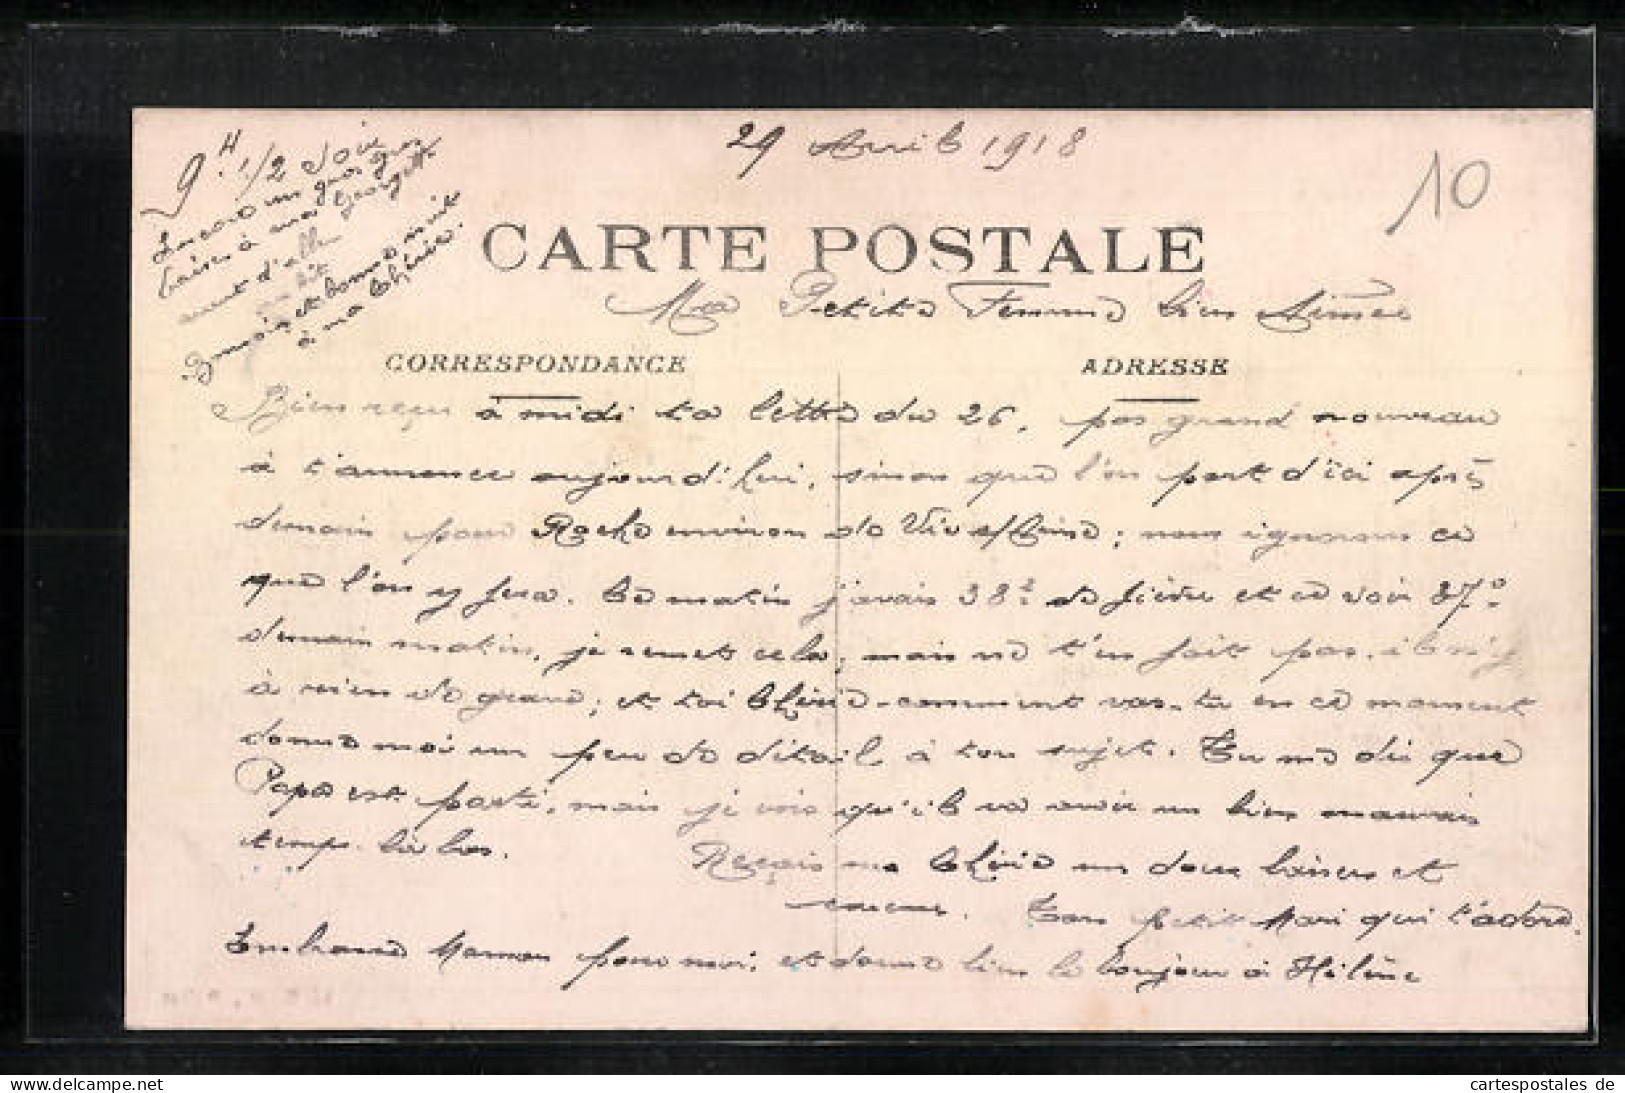 29 Avril 1918
10
9.H 1/2 Soir
Encore un gros gros
baiser à ma Georgette
avant d'aller
au lit
Bonsoir et bonne nuit
à ma Chérie.
CARTE POSTALE
Ma Petite Femme bien Aimée
CORRESPONDANCE
ADRESSE
Bien reçu à midi ta lettre du 26, pas grand nouveau
à t'annoncer aujourd'hui, sinon que l'on part d'ici après
demain pour environ de Vic s/Aisne; nous ignorons ce
que l'on y fera. Ce matin j'avais 38°2 de fièvre et ce soir 37°
demain matin, je remets cela, mais ne t'en fait pas, il n'y
à rien de grave; et toi Chérie comment vas-tu en ce moment
donne moi un peu de détail à ton sujet. Tu me dis que
Papa est parti, mais je vois qu'il va avoir un bien mauvais
temps là bas.
Reçois ma Chérie un doux baiser et
Ton petit Mari qui t'adore.
Embrasse Maman pour moi, et donne bien le bonjour à Hélène
cartespostales de